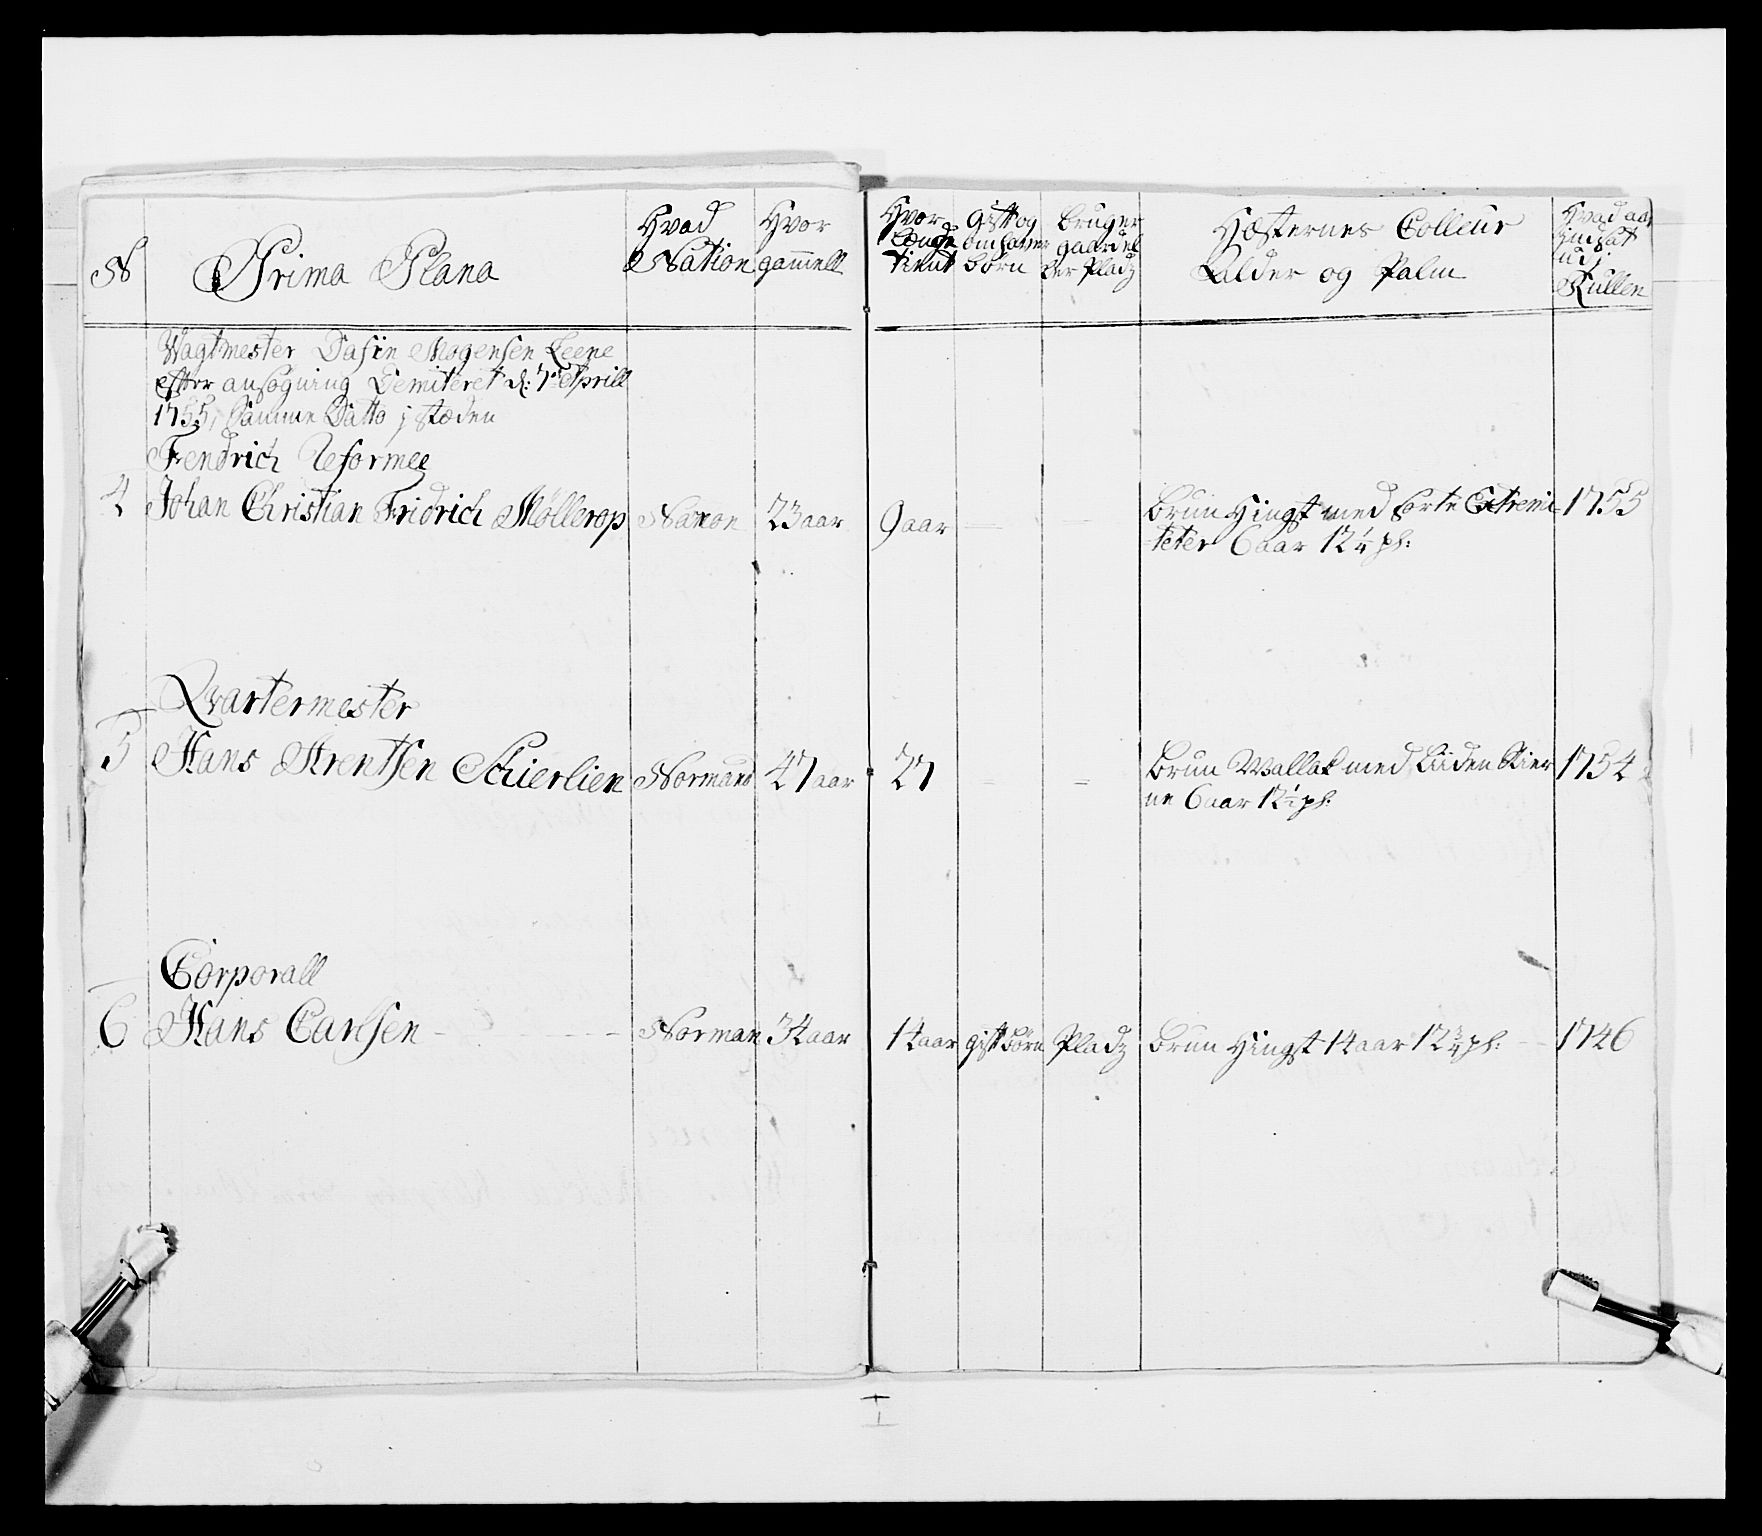 No
Prima Plana
Hvad
Nation
Hvor
gam̄ell
Hvor
Længe
tient
Gift og
om haver
børn
Bruger
gaard el
ler Pladz
Hæsternes Colleur
Alder og Palm
Hvad aar
indsat
udj
Rullen
Wagtmester Dafin Mogensen Leene
efter ansøgning Demiteret d: 7de Aprill
1755, Samme Datto j stæden
Fendrich Reformee
4 Johan Christian Fridrich Møllerop Saxon 23 aar 9 aar Brun Hingst med sorte Extremi- 1755
teter 6 aar 12 1/4 pl:
Qvartermester
5 Hans Arentsen Schierlien Normand 47 aar 27 Brun Wallak med Liden Stier 1754
ne 6 aar 12 1/2 pl:
Corporall
6 Hans Carlsen Norman 34 aar 14 aar gift børn Pladz Brun Hingst 14 aar 12 3/4 pl: 1746